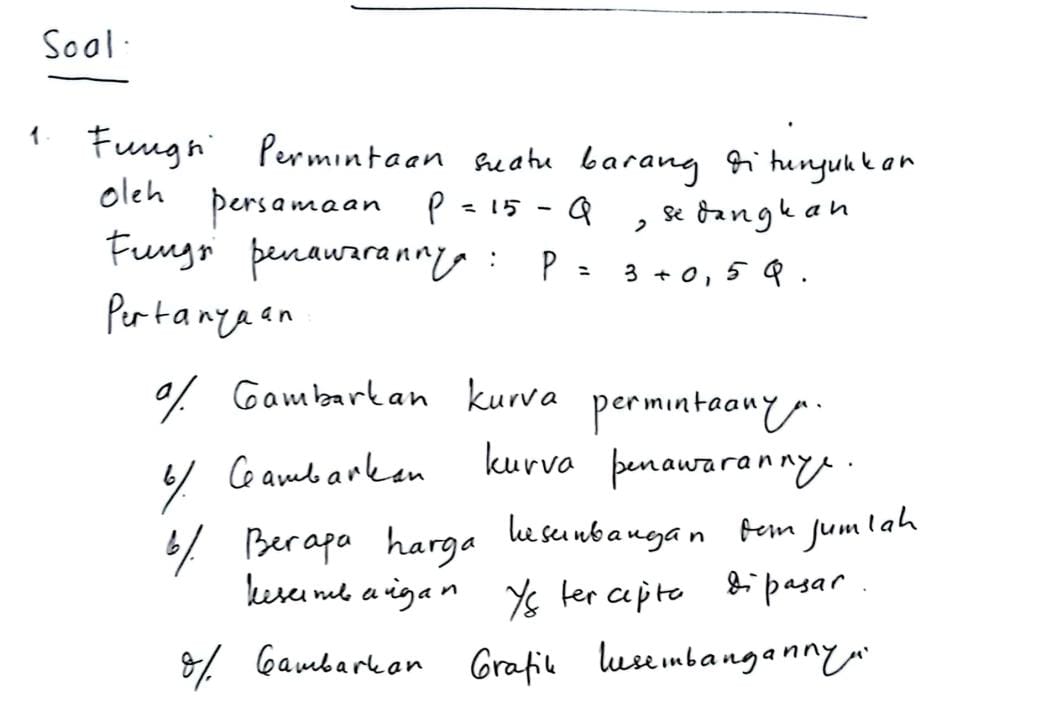 Soal:
1. Fungsi Permintaan suatu barang ditunjukkan
oleh persamaan P = 15 - Q , sedangkan
Fungsi penawarannya : P = 3 + 0,5 Q.
Pertanyaan
a/. Gambarkan kurva permintaanya.
b/. Gambarkan kurva penawarannya.
b/. Berapa harga keseimbangan dan jumlah
keseimbangan yg tercipta dipasar.
d/. Gambarkan Grafik keseimbangannya